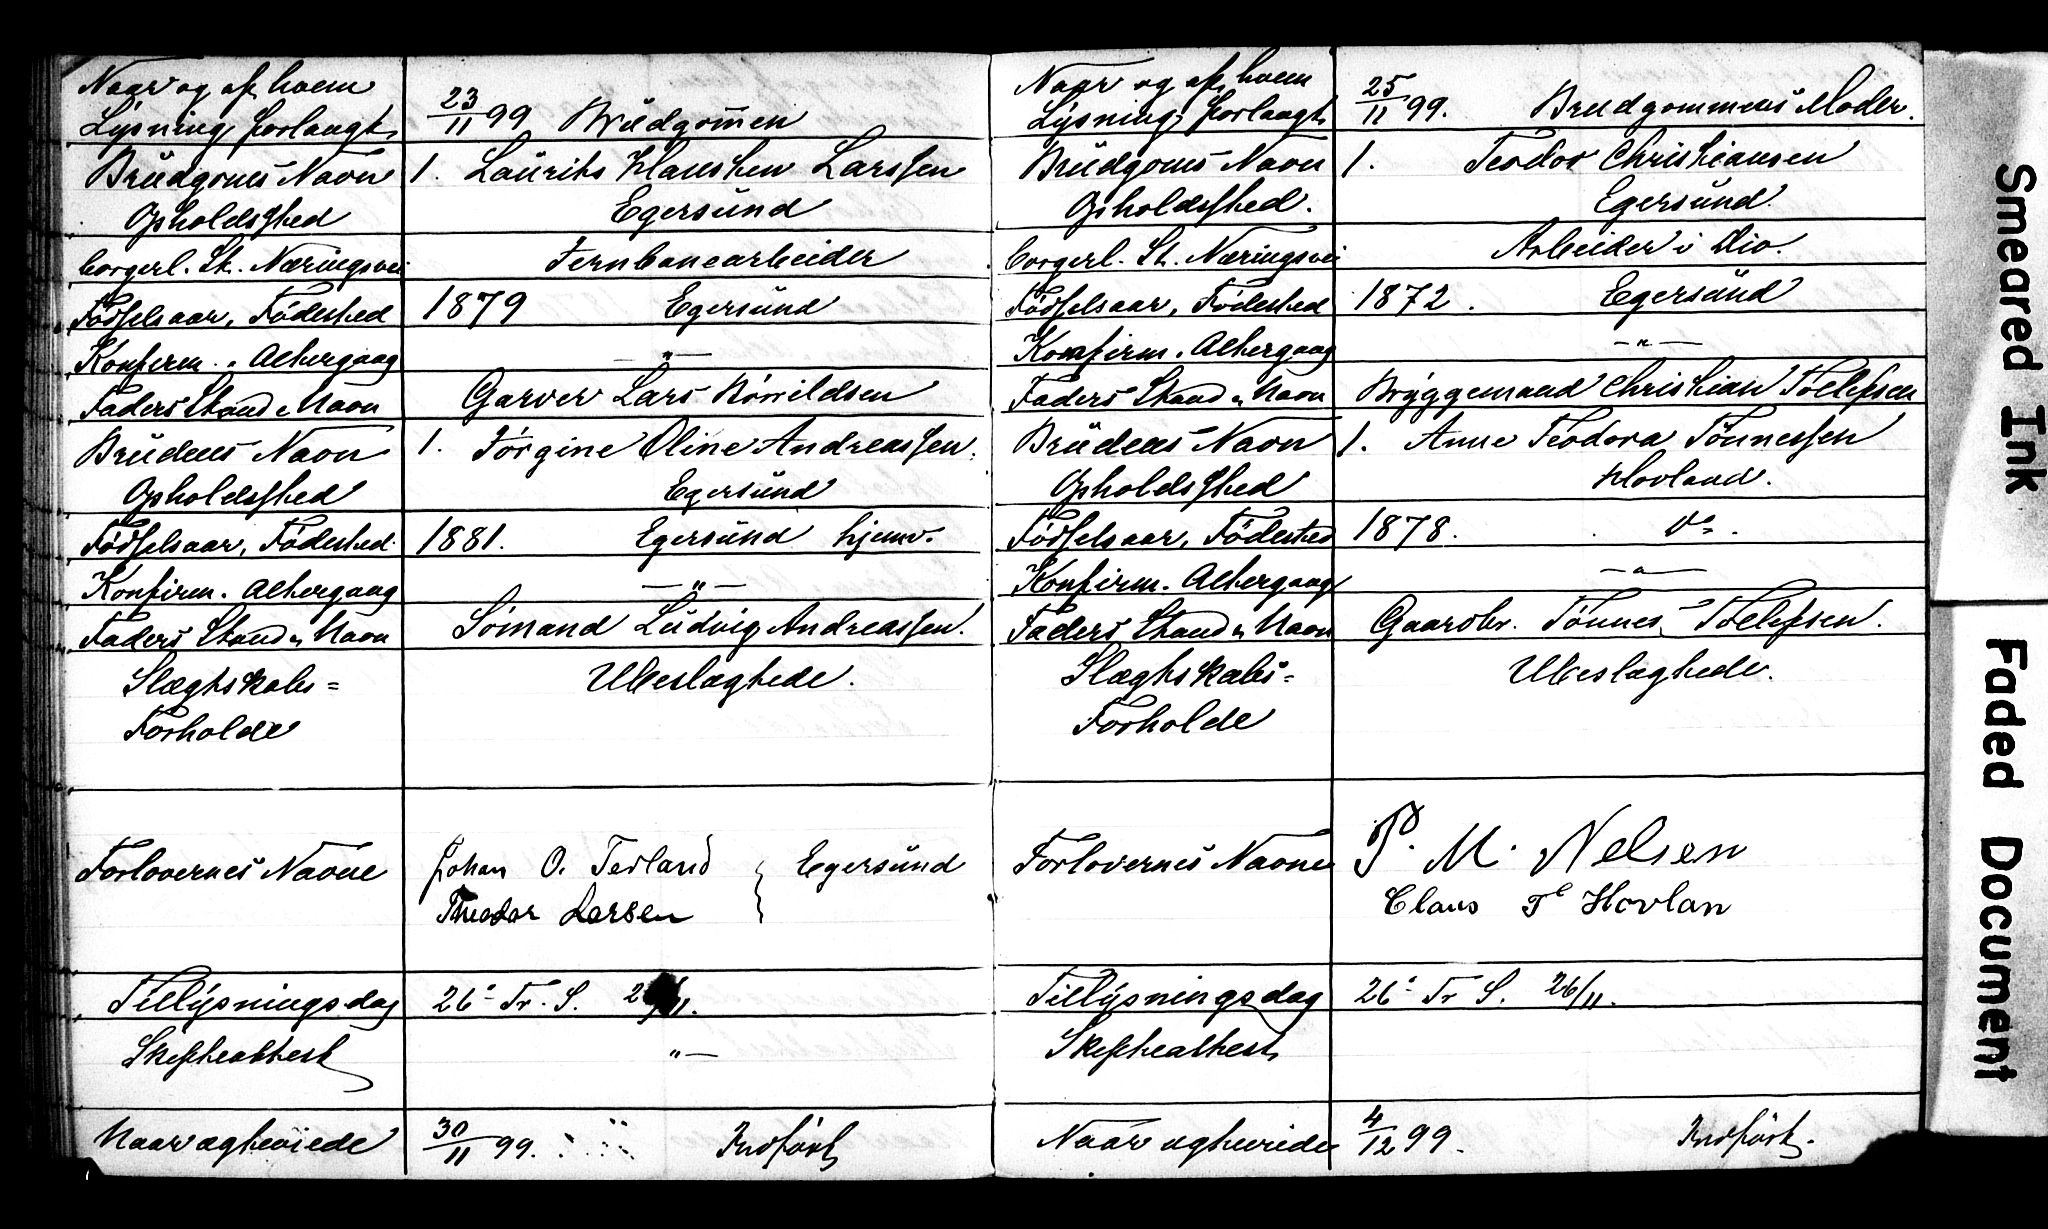 Naar og af hvem
Lysning forlangt 23/11 99 Brudgommen
Brudgoms Navn 1. Laurits Klausken Larssen
Opholdssted Egersund
borgerl. St. Næringsvei Jernbanearbeider
Fødselsaar, Fødested 1879 Egersund
Konfirm. Altergang — " —
Faders Stand & Navn Garver Lars Rørvildsen
Brudens Navn 1. Jørgine Oline Andreassen.
Opholdssted Egersund
Fødselsaar, Fødested. 1881. Egersund hjemv.
Konfirm. Altergang — " —
Faders Stand & Navn Sømand Ludvig Andreassen.
Slægtskabs= Ubeslægtede.
Forholde
Forlovernes Navne Johan O. Terland } Egersund
Theodor Larsen
Tillysningsdag 26de Tr. S. 26/11.
Skifteattest " —
Naar agteviede 30/11 99. Indført
Naar og af hvem
Lysning forlangt 25/11 99. Brudgommens Moder.
Brudgoms Navn 1. Teodor Christiansen
Opholdssted. Egersund.
borgerl. St. Næringsvei Arbeider i Dio.
Fødselsaar, Fødested 1872. Egersund
Konfirm. Altergang — " —
Faders Stand & Navn Bryggemand Christian Tollefsen
Brudens Navn 1. Anne Teodora Tønnessen
Opholdssted Hovland.
Fødselsaar, Fødested 1878. do.
Konfirm. Altergang — " —
Faders Stand & Navn Gaardbr. Tønnes Tollefsen.
Slægtskabs= Ubeslægtede.
Forholde
Forlovernes Navne P. M. Nelsen
Claus T Hovlan
Tillysningsdag 26de Tr S. 26/11.
Skifteattest
Naar agteviede 4/12 99. Indført.
Smeared Ink
Faded Document